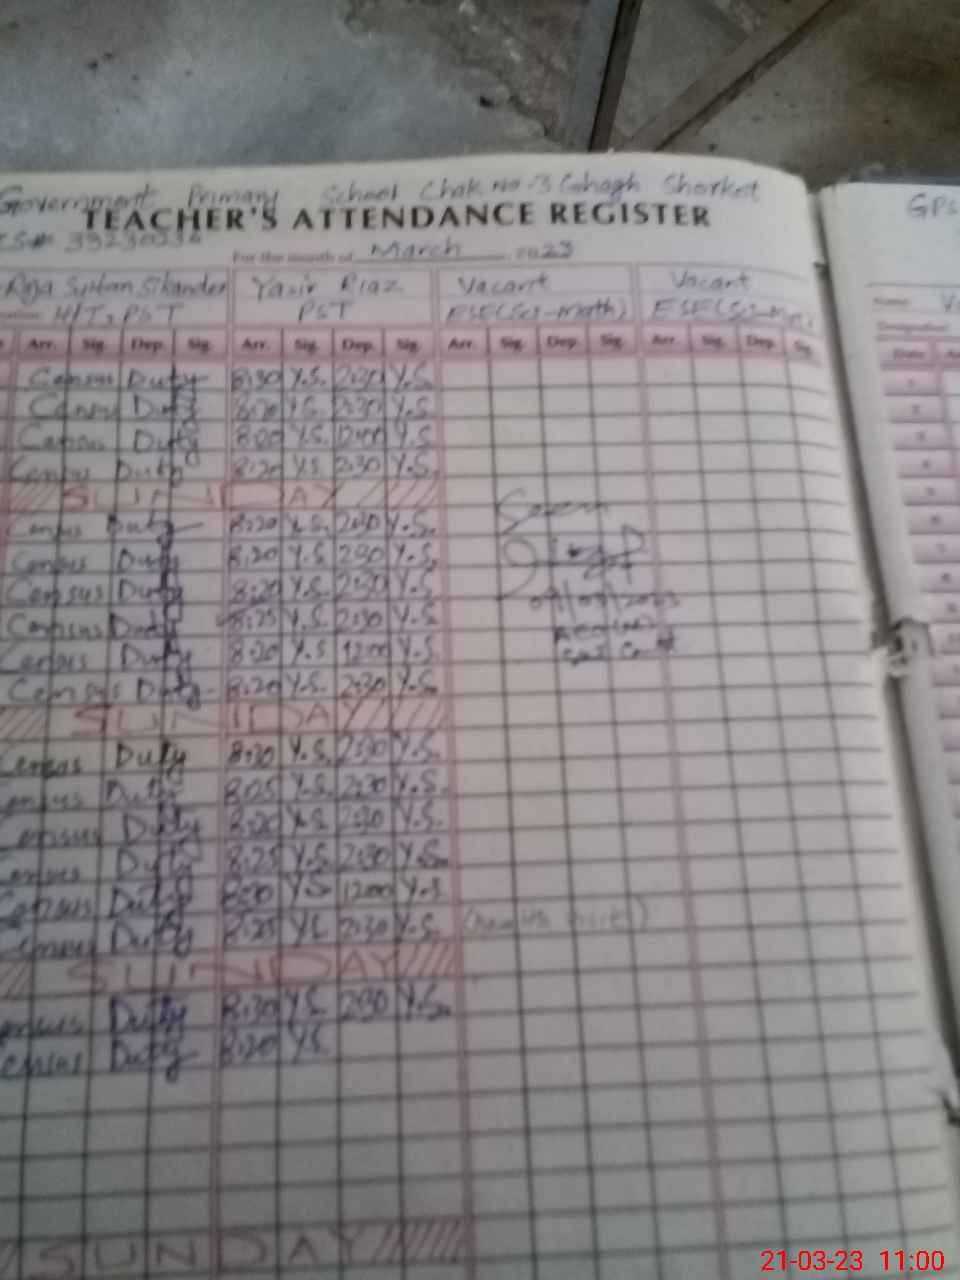 Government Primary School Chak No-3 Gohagh Shorkot
TEACHER'S ATTENDANCE REGISTER
For the month of March 2023
Raja Sultan Sikander Yasir Riaz Vacant Vacant
H/T, PST PST ESE(Sci-Math) ESE(Sci-Mat
Arr. Sig. Dep. Sig. Arr. Sig. Dep. Sig. Arr. Sig. Dep. Sig. Arr. Sig. Dep. Sig.
Census Duty 8:30 Y.S. 2:30 Y.S.
Census Duty 8:20 Y.S. 2:30 Y.S.
Census Duty 8:20 Y.S. 12:00 Y.S.
Census Duty 8:20 Y.S. 2:30 Y.S.
SUNDAY
Census Duty 8:20 Y.S. 2:30 Y.S.
Census Duty 8:20 Y.S. 2:30 Y.S.
Census Duty 8:20 Y.S. 2:30 Y.S.
Census Duty 8:25 Y.S. 2:30 Y.S.
Census Duty 8:20 Y.S 1200 Y.S.
Census Duty 8:20 Y.S. 2:30 Y.S.
SUNDAY
Census Duty 8:30 Y.S. 2:30 Y.S.
ensus Duty 8:25 Y.S. 2:30 Y.S.
Census Duty 8:20 Y.S. 2:30 Y.S.
ensus Duty 8:25 Y.S. 2:30 Y.S.
Census Duty 8:20 Y.S 1200 Y.S
ensus Duty 8:25 Y.S. 2:30 Y.S.
SUNDAY
ensus Duty 8:30 Y.S. 2:30 Y.S.
ensus Duty 8:20 Y.S.
SUNDAY
Seen
GPS
Name
Designation
Date
21-03-23 11:00